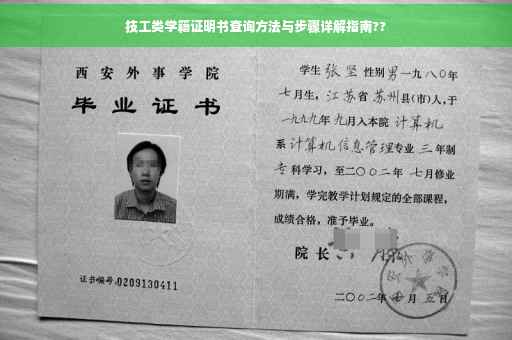 技工类学籍证明书查询方法与步骤详解指南??
西安外事学院
毕业证书
证书编号:0209130411
学生 张坚 性别 男 一九八〇年
七月生,江苏省 苏州县(市)人,于
一九九九年 九月入本院 计算机
系 计算机信息管理专业 三 年制
专科学习,至二〇〇二年 七月修业
期满,学完教学计划规定的全部课程,
成绩合格,准予毕业。
院长
二〇〇二年 七月 五日